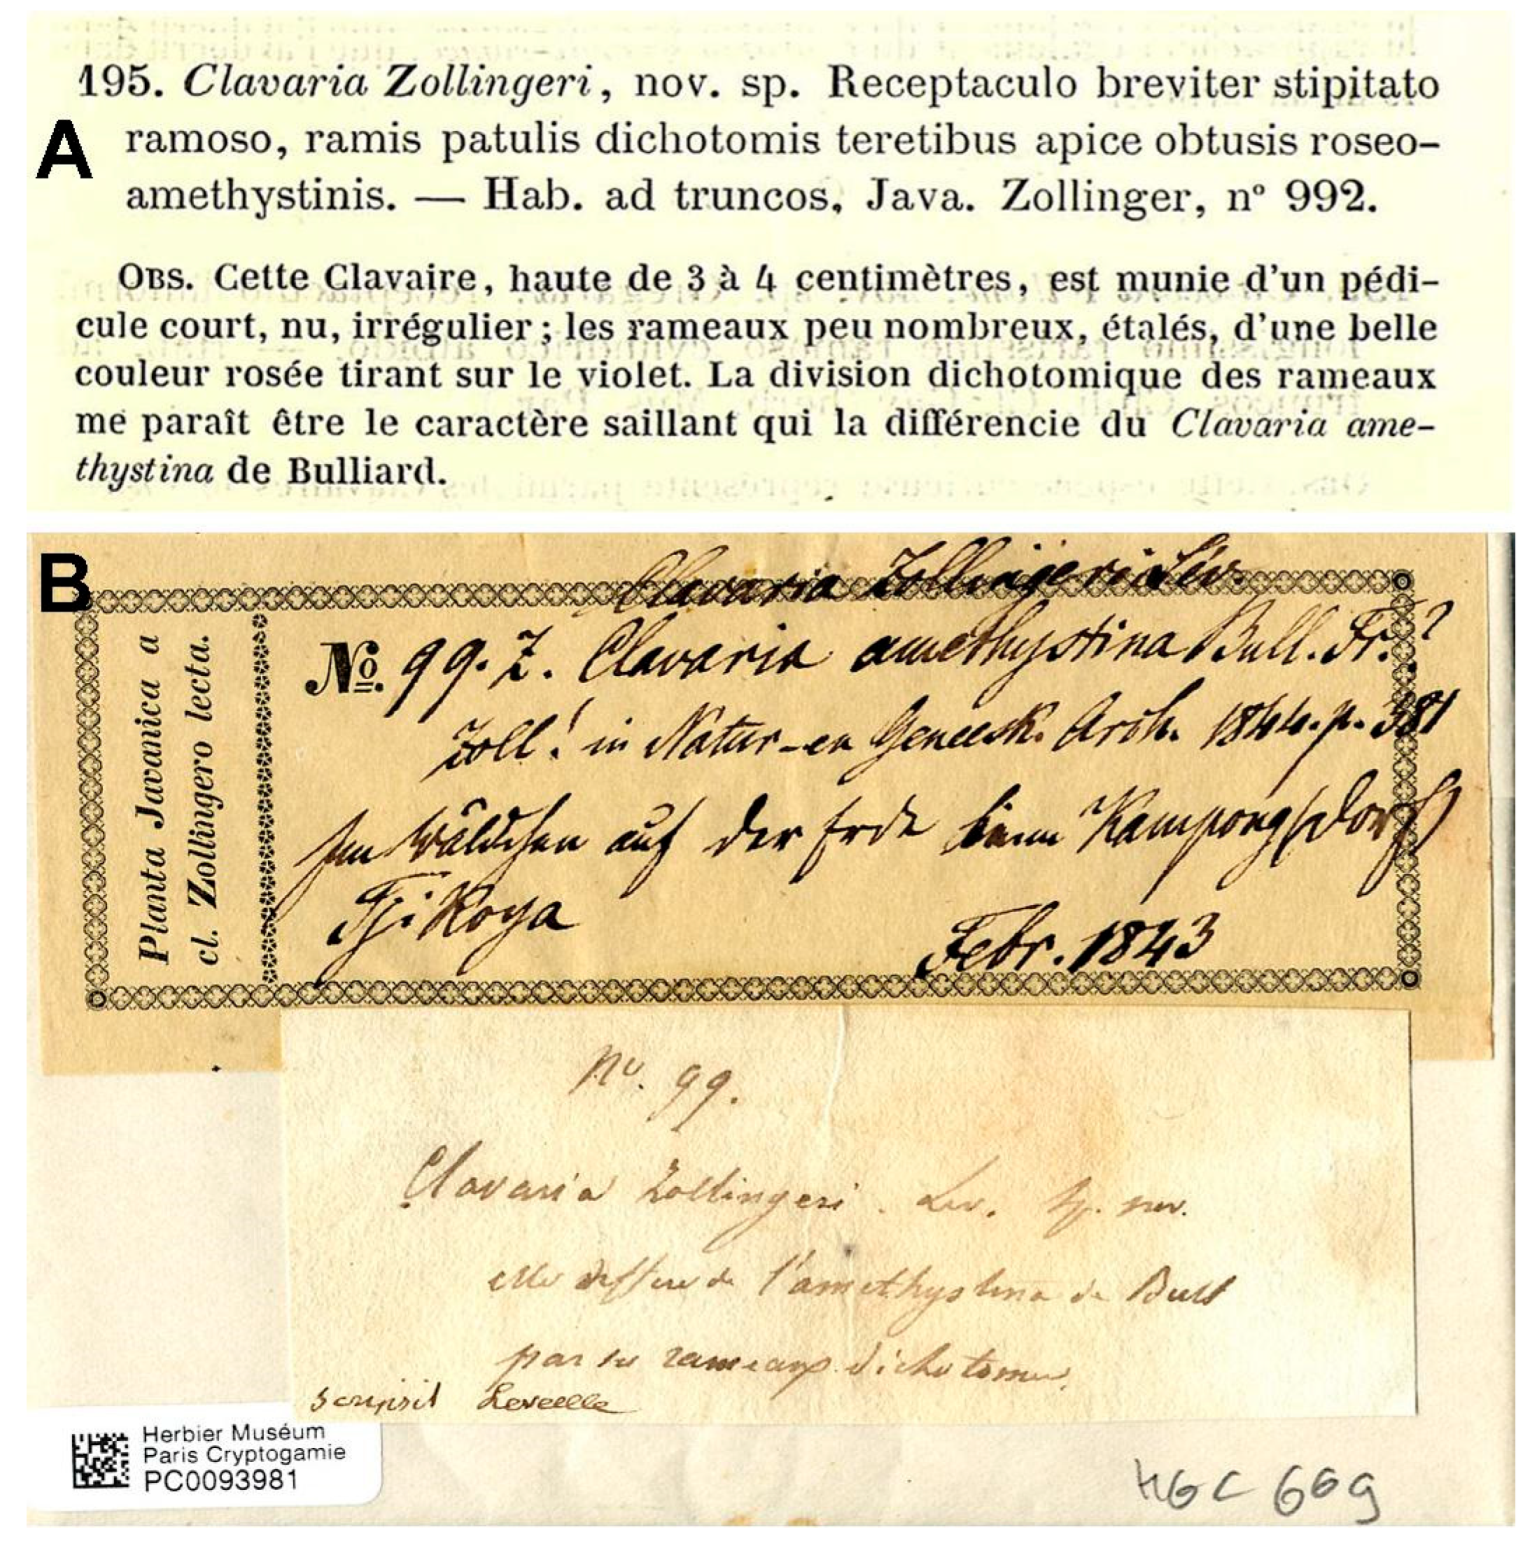 A
195. Clavaria Zollingeri, nov. sp. Receptaculo breviter stipitato
ramoso, ramis patulis dichotomis teretibus apice obtusis roseo-
amethystinis. — Hab. ad truncos, Java. Zollinger, n° 992.
OBS. Cette Clavaire, haute de 3 à 4 centimètres, est munie d'un pédi-
cule court, nu, irrégulier; les rameaux peu nombreux, étalés, d'une belle
couleur rosée tirant sur le violet. La division dichotomique des rameaux
me paraît être le caractère saillant qui la différencie du Clavaria ame-
thystina de Bulliard.
B
Clavaria Zollingeri Lév.
Planta Javanica a
cl. Zollingero lecta.
No. 99. Z. Clavaria amethystina Bull. Fr.?
Zoll! in Natur-en Geneesk. Arch. 1844. p. 381
Im Wäldchen auf der Erde beim Kampong (Dorf)
Tjikoya
Febr. 1843
No. 99.
Clavaria Zollingeri. Lev. Sp. nov.
elle differe de l'amethystina de Bull
par ses rameaux dichotomes.
scripsit Leveille
Herbier Muséum
Paris Cryptogamie
PC0093981
HGC 669